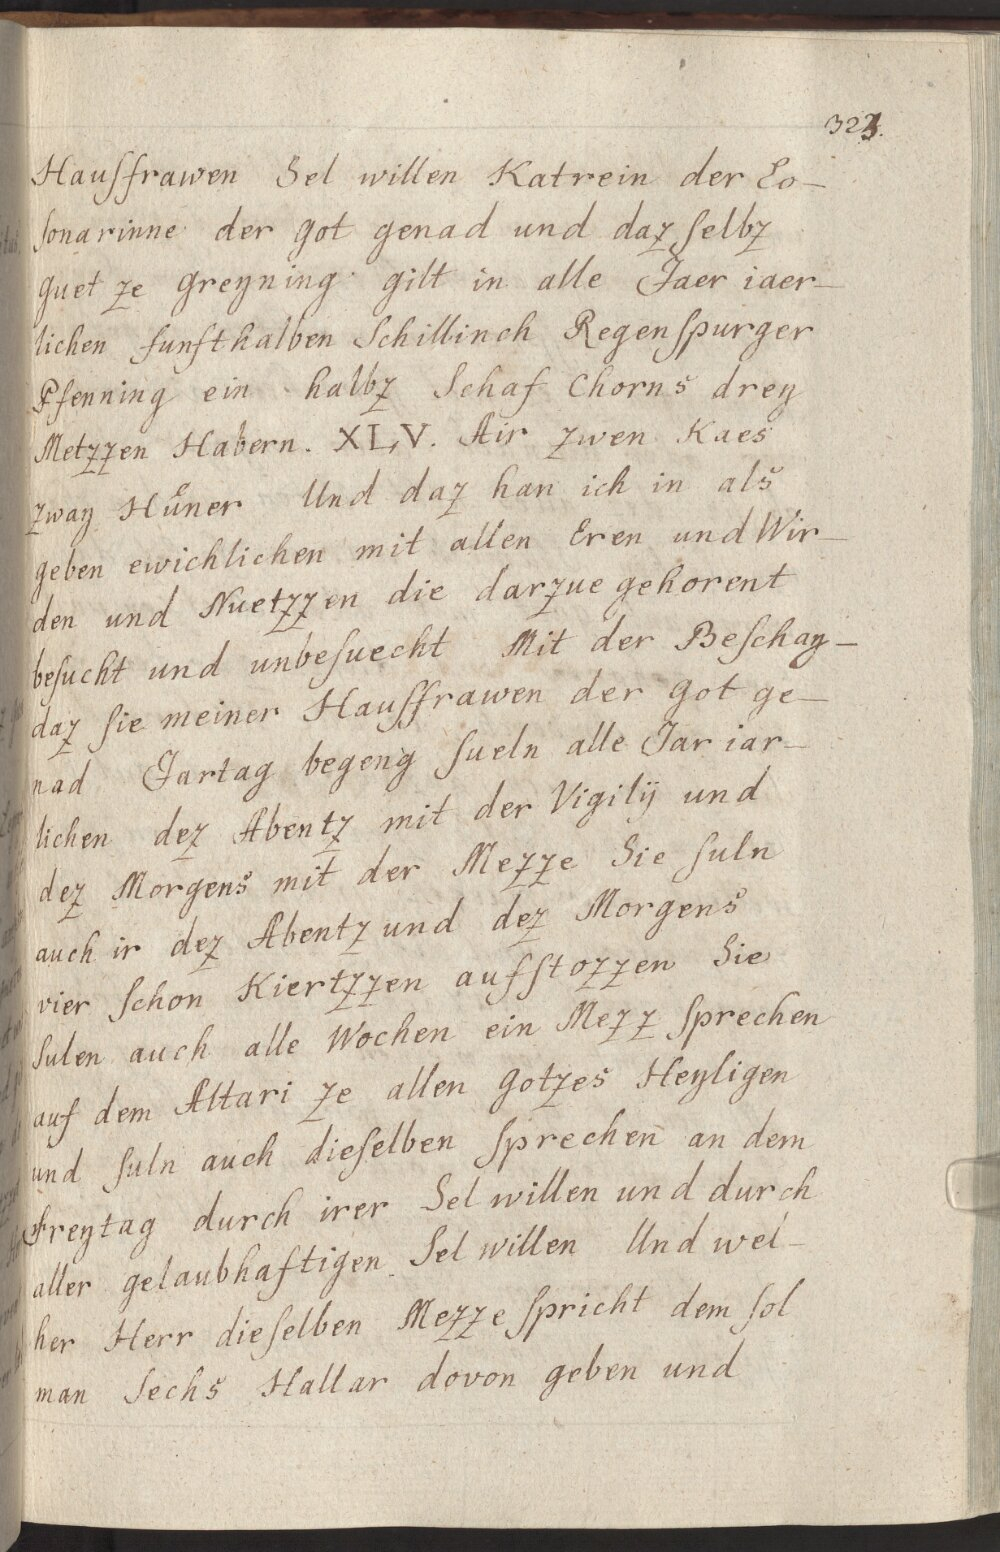 323.
Hausfrawen Sel willen Katrein der Lo-
sonarinne der got genad und daz selbz
guet ze greyning gilt in alle Jaer iaer-
lichen funfthalben Schillinch Regenspurger
Pfenning ein halbz Schaf Chorns drey
Metzzen Habern. XLV. Air zwen Kaes
zway Hůner Und daz han ich in als
geben ewichlichen mit allen Eren und Wir-
den und Nuetzzen die darzue gehorent
besucht und unbesuecht Mit der Beschay-
daz sie meiner Hausfrawen der got ge-
nad Jartag begeng sueln alle Jar iar-
lichen dez Abentz mit der Vigilÿ und
dez Morgens mit der Mezze Sie suln
auch ir dez Abentz und dez Morgens
vier schon Kiertzzen aufstozzen Sie
sulen auch alle Wochen ein Mezz sprechen
auf dem Altari ze allen gotzes Heyligen
und suln auch dieselben sprechen an dem
Freytag durch irer Sel willen und durch
aller gelaubhaftigen Sel willen Und wel-
her Herr dieselben Mezze spricht dem sol
man sechs Hallar dovon geben und